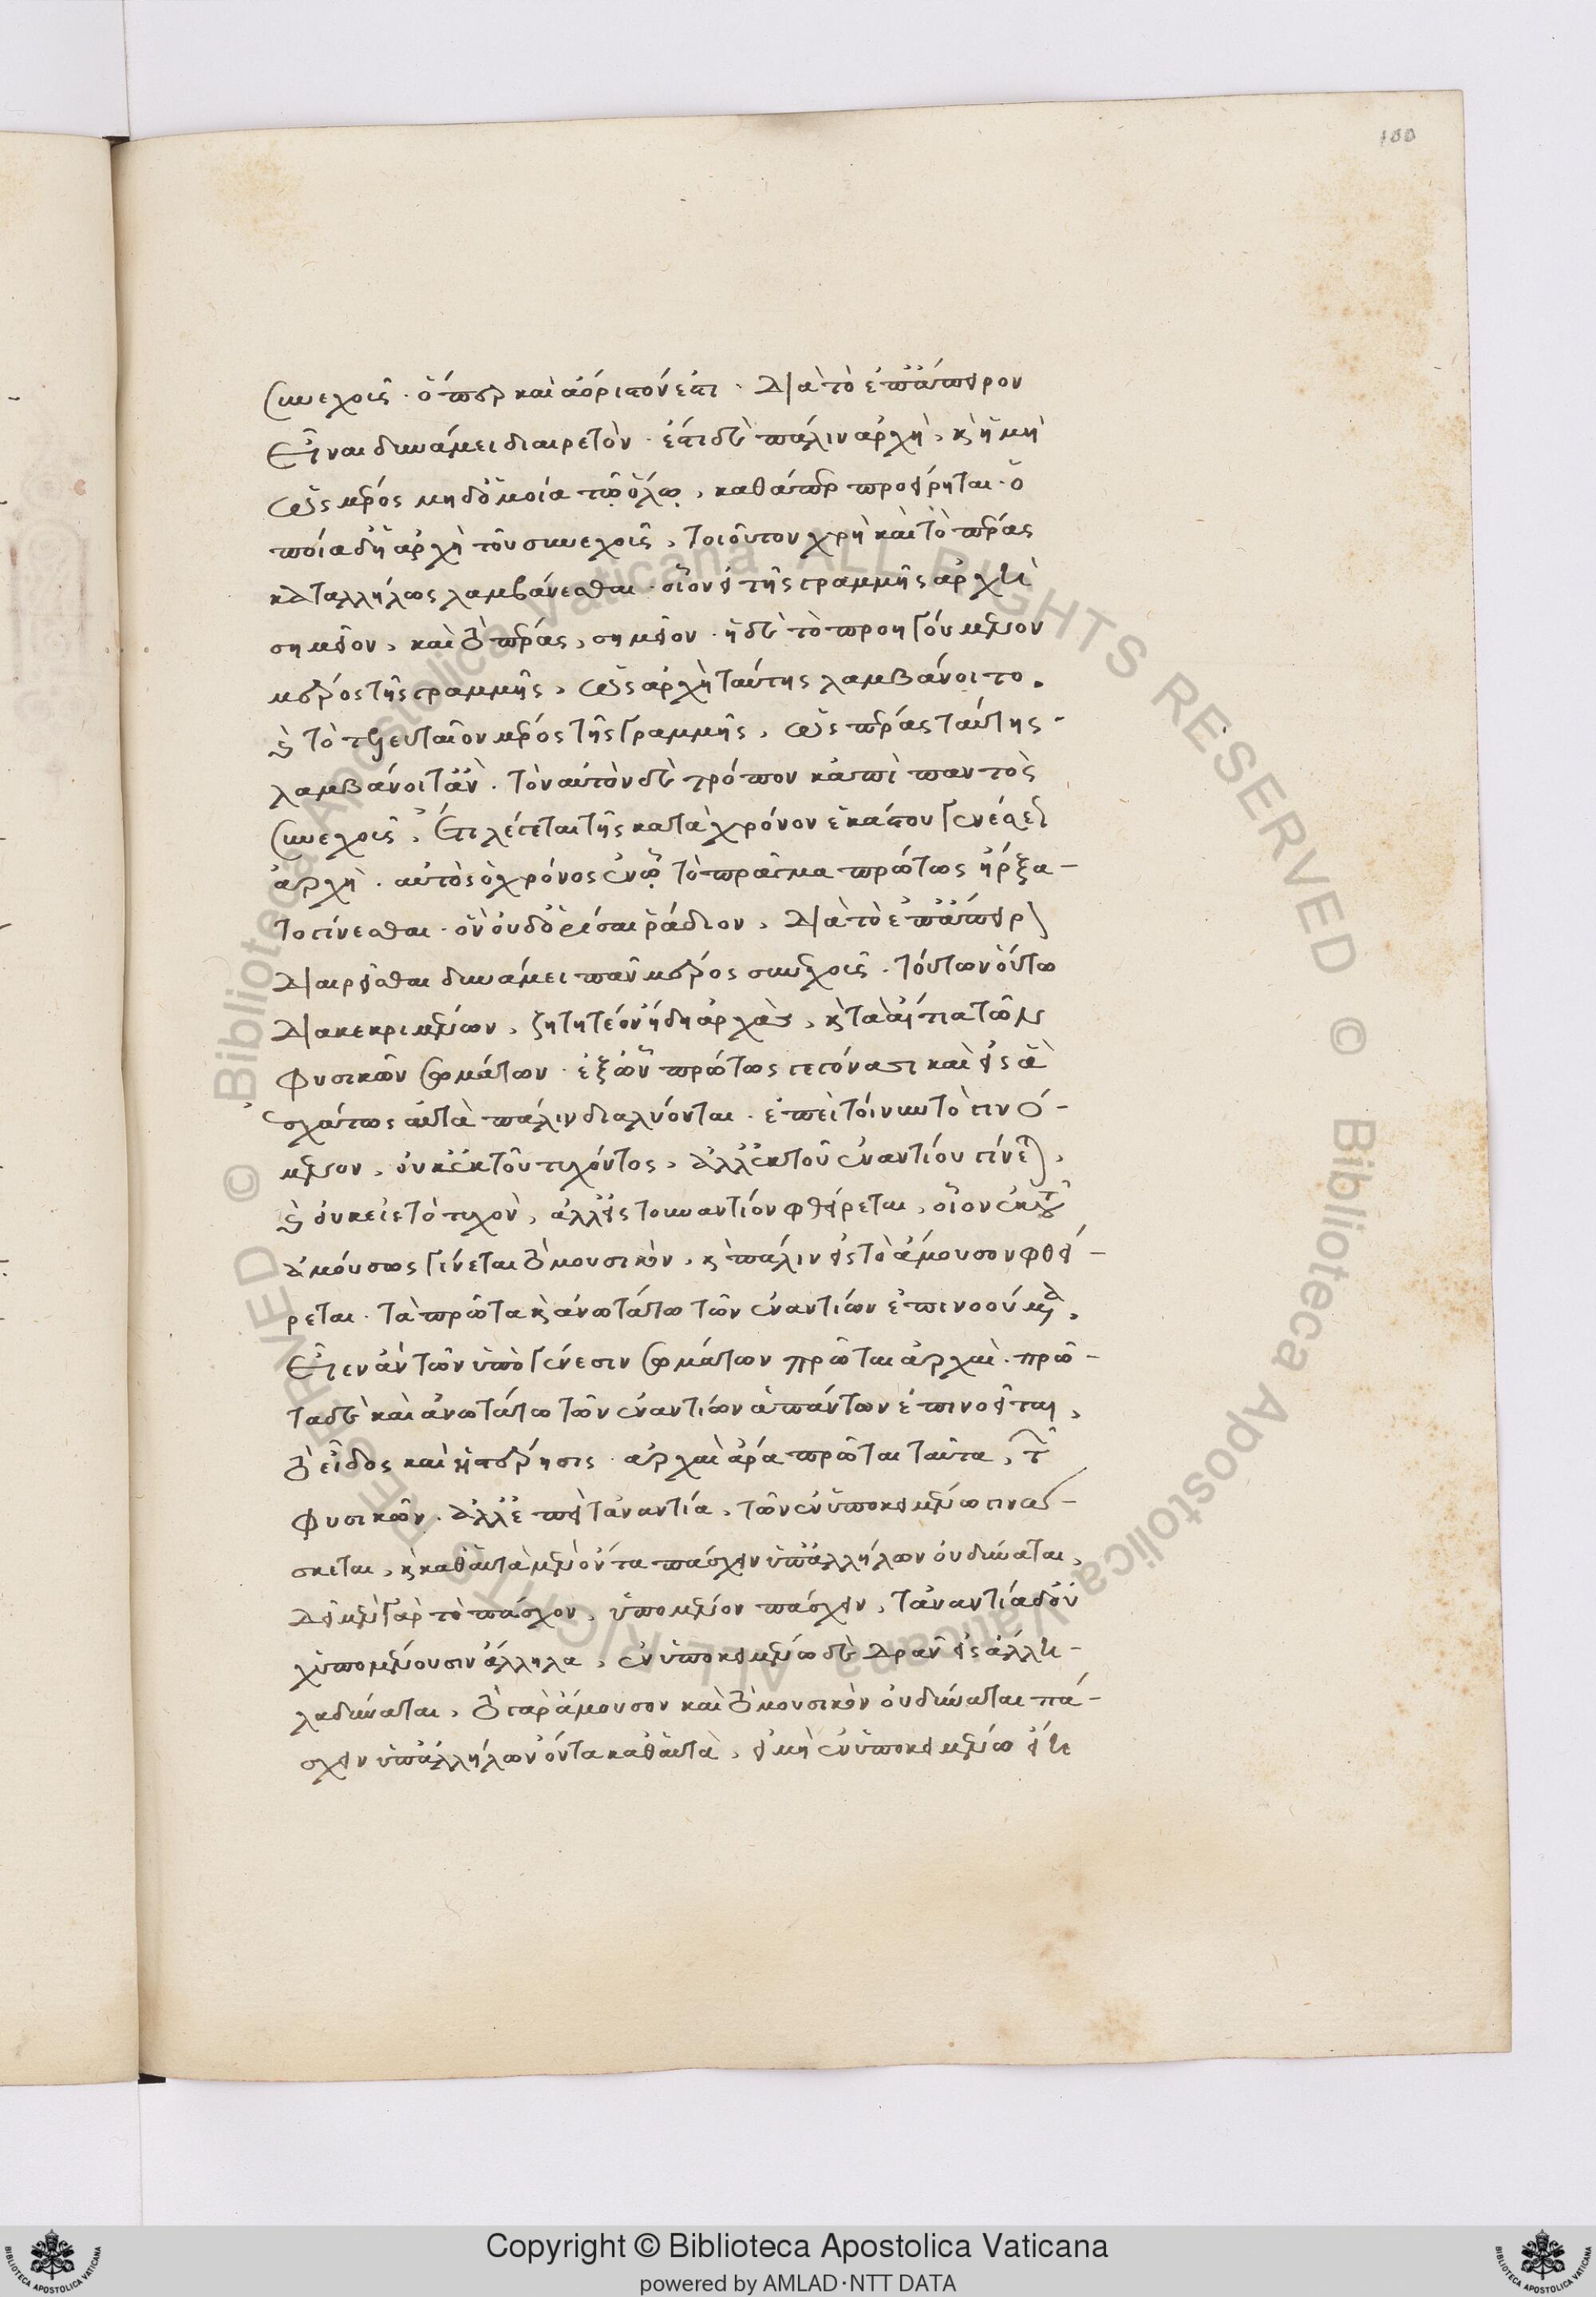 100
συνεχοῦς · ὅπερ καὶ ἀόριστόν ἐστι · διὰ τὸ ἐπ' ἄπειρον
εἶναι δυνάμει διαιρετόν · ἔστι δὲ πάλιν ἀρχὴ, κἢ μὴ
ὡς μέρος μηδ' ὁμοία τῷ ὅλῳ, καθάπερ προείρηται · ὁ
ποία δ' ἂν ἀρχὴ τοῦ συνεχοῦς, τοιοῦτον χρὴ καὶ τὸ πέρας
καταλλήλως λαμβάνεσθαι · οἷον εἰ τῆς γραμμῆς ἀρχὴ
σημεῖον, καὶ τὸ πέρας, σημεῖον · εἰ δὲ τὸ προηγούμενον
μέρος τῆς γραμμῆς, ὡς ἀρχὴ ταύτης λαμβάνοιτο.
καὶ τὸ τελευταῖον μέρος τῆς γραμμῆς, ὡς πέρας ταύτης
λαμβάνοιτ' ἄν · τὸν αὐτὸν δὲ τρόπον κἀπὶ παντὸς
συνεχοῦς · ἔτι λέγεται τῆς κατὰ χρόνον ἑκάστου γενέσεως
ἀρχὴ · αὐτὸς ὁ χρόνος ἐν ᾧ τὸ πρᾶγμα πρώτως ἤρξα-
το γίνεσθαι · ὃν οὐδ' ὁρίσαι ῥάδιον, διὰ τὸ ἐπ' ἄπειρον
διαιρεῖσθαι δυνάμει πᾶν μέρος συνεχοῦς · τούτων οὕτω
διακεκριμένων, ζητητέον ἤδη ἀρχὰς, καὶ τὰ αἴτια τῶν
φυσικῶν σωμάτων · ἐξ ὧν πρώτως γεγόνασι καὶ εἰς ἃ
ἐσχάτως αὐτὰ πάλιν διαλύονται · ἐπεὶ τοίνυν τὸ γινό-
μενον, οὐκ ἐκ τοῦ τυχόντος, ἀλλ' ἐκ τοῦ ἐναντίου γίνεται,
καὶ οὐκ εἰς τὸ τυχὸν, ἀλλ' εἰς τοὐναντίον φθείρεται, οἷον ἐκ τοῦ
ἀμούσως γίνεται τὸ μουσικὸν, καὶ πάλιν εἰς τὸ ἄμουσον φθεί-
ρεται · τὰ πρῶτα καὶ ἀνωτάτω τῶν ἐναντίων ἐπινοούμενα,
εἶεν ἂν τῶν ὑπὸ γένεσιν σωμάτων πρῶται ἀρχαὶ · πρῶ-
τα δὲ καὶ ἀνωτάτω τῶν ἐναντίων ἁπάντων ἐπινοεῖται,
τὸ εἶδος καὶ ἡ στέρησις · ἀρχαὶ ἄρα πρῶται ταῦτα, τῶν
φυσικῶν · ἀλλ' ἐπεὶ τἀναντία, τῶν ἐν ὑποκειμένω γινώ-
σκεται, καὶ καθ' αὑτὰ μὲν ὄντα πάσχειν ὑπ' ἀλλήλων οὐ δύναται,
δεῖ μὲν γὰρ τὸ πάσχον, ὑπομένον πάσχειν, τἀναντία δ' οὐ
χ' ὑπομένουσιν ἄλληλα, ἐν ὑποκειμένω δὲ δρᾶν εἰς ἄλλη-
λα δύναται, τὸ γὰρ ἄμουσον καὶ τὸ μουσικὸν οὐ δύναται πά-
σχειν ὑπ' ἀλλήλων ὄντα καθ' αὑτὰ, εἰ μὴ ἐν ὑποκειμένω εἴη
Copyright © Biblioteca Apostolica Vaticana
powered by AMLAD·NTT DATA